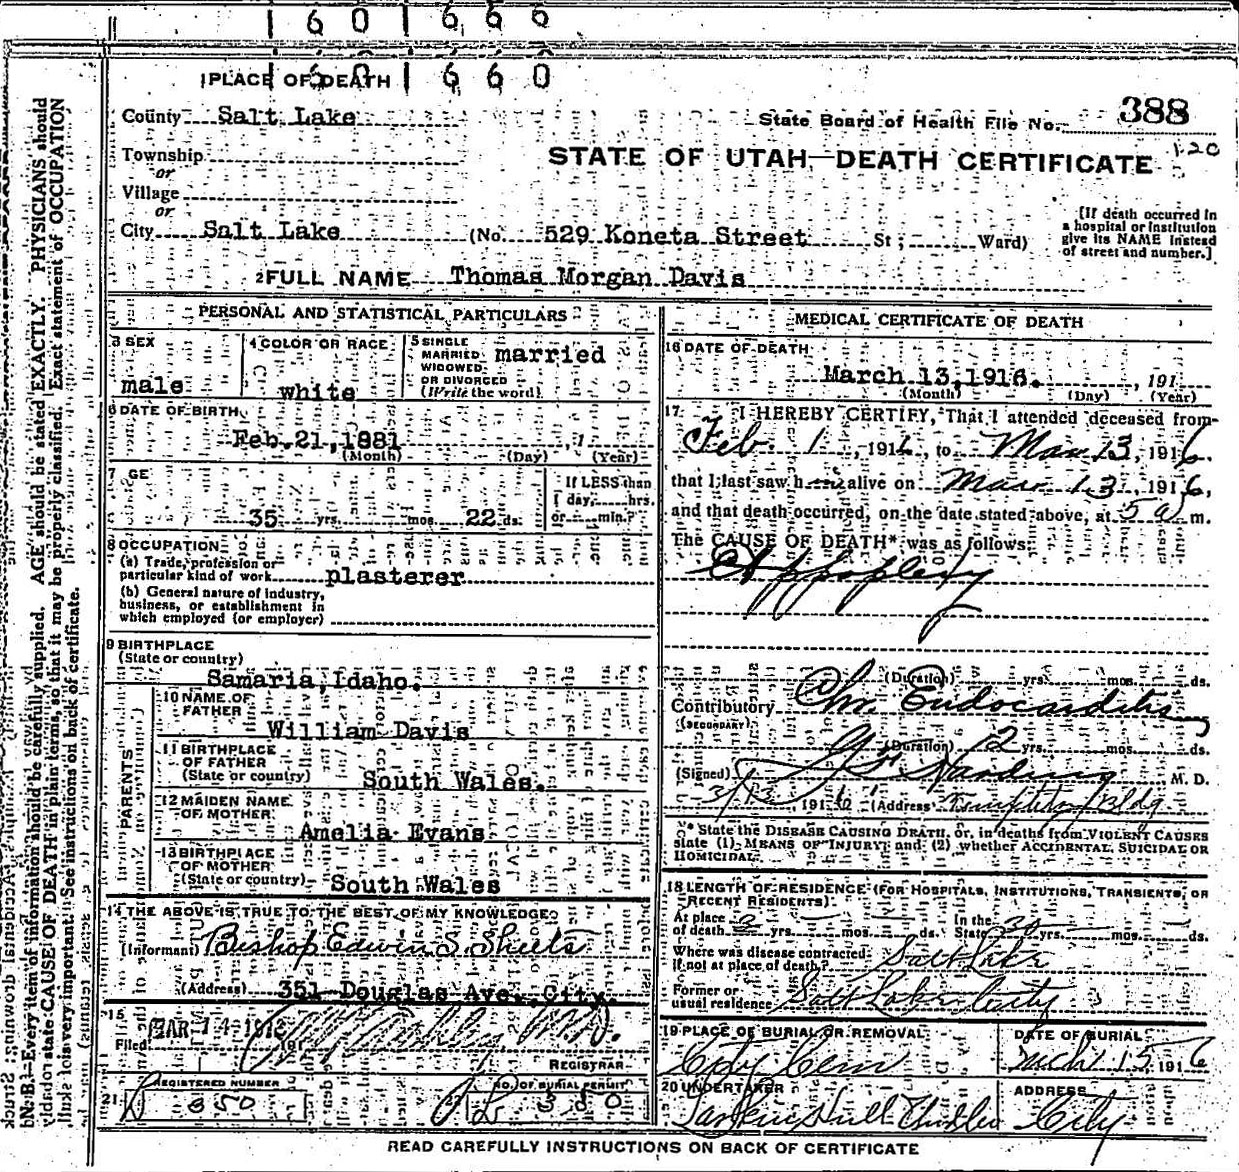 1 6 0 1 6 6 6
1 6 0 1 6 6 0
1 PLACE OF DEATH
County Salt Lake
State Board of Health File No. 388
120
Township
or
STATE OF UTAH—DEATH CERTIFICATE
Village
or
City Salt Lake (No. 529 Koneta Street St; Ward)
[If death occurred in
a hospital or institution
give its NAME instead
of street and number.]
2 FULL NAME Thomas Morgan Davis
PERSONAL AND STATISTICAL PARTICULARS
3 SEX
male
4 COLOR OR RACE
white
5 SINGLE
MARRIED
WIDOWED
OR DIVORCED
(Write the word)
married
6 DATE OF BIRTH
Feb.21,1881
(Month) (Day) (Year)
7 GE
35 yrs. mos. 22 ds.
If LESS than
1 day, hrs.
or min.?
8 OCCUPATION
(a) Trade, profession or
particular kind of work plasterer
(b) General nature of industry,
business, or establishment in
which employed (or employer)
9 BIRTHPLACE
(State or country)
Samaria, Idaho.
PARENTS
10 NAME OF
FATHER
William Davis
11 BIRTHPLACE
OF FATHER
(State or country) South Wales.
12 MAIDEN NAME
OF MOTHER
Amelia Evans
13 BIRTHPLACE
OF MOTHER
(State or country) South Wales
14 THE ABOVE IS TRUE TO THE BEST OF MY KNOWLEDGE
(Informant) Bishop Edwin S. Sheets
(Address) 351 Douglas Ave., City
15
Filed MAR 14 191 M.D.
REGISTRAR
21 REGISTERED NUMBER
NO. OF BURIAL PERMIT
MEDICAL CERTIFICATE OF DEATH
16 DATE OF DEATH
March 13,1916. , 191
(Month) (Day) (Year)
17 I HEREBY CERTIFY, That I attended deceased from
Feb 1, 1916, to Mar 13, 1916.
that I last saw him alive on Mar 13, 1916,
and that death occurred, on the date stated above, at 5 a m.
The CAUSE OF DEATH* was as follows:
Appoplexy
(Duration) yrs. mos. ds.
Contributory Chr. Endocarditis
(SECONDARY)
(Duration) 12 yrs. mos. ds.
(Signed) Harding M. D.
3/13 1916 (Address) Templeton Bldg
* State the DISEASE CAUSING DEATH, or, in deaths from VIOLENT CAUSES
state (1) MEANS OF INJURY; and (2) whether ACCIDENTAL, SUICIDAL OR
HOMICIDAL.
18 LENGTH OF RESIDENCE (FOR HOSPITALS, INSTITUTIONS, TRANSIENTS, OR
RECENT RESIDENTS)
At place
of death 3 yrs. mos. ds.
In the
State 30 yrs. mos. ds.
Where was disease contracted
if not at place of death? Salt Lake
Former or
usual residence Salt Lake City
19 PLACE OF BURIAL OR REMOVAL
City Cem
DATE OF BURIAL
Mch 15 1916
20 UNDERTAKER
ADDRESS
City
READ CAREFULLY INSTRUCTIONS ON BACK OF CERTIFICATE
N. B.—Every item of information should be carefully supplied. AGE should be stated EXACTLY. PHYSICIANS should
state CAUSE OF DEATH in plain terms, so that it may be properly classified. Exact statement of OCCUPATION
is very important. See instructions on back of certificate.